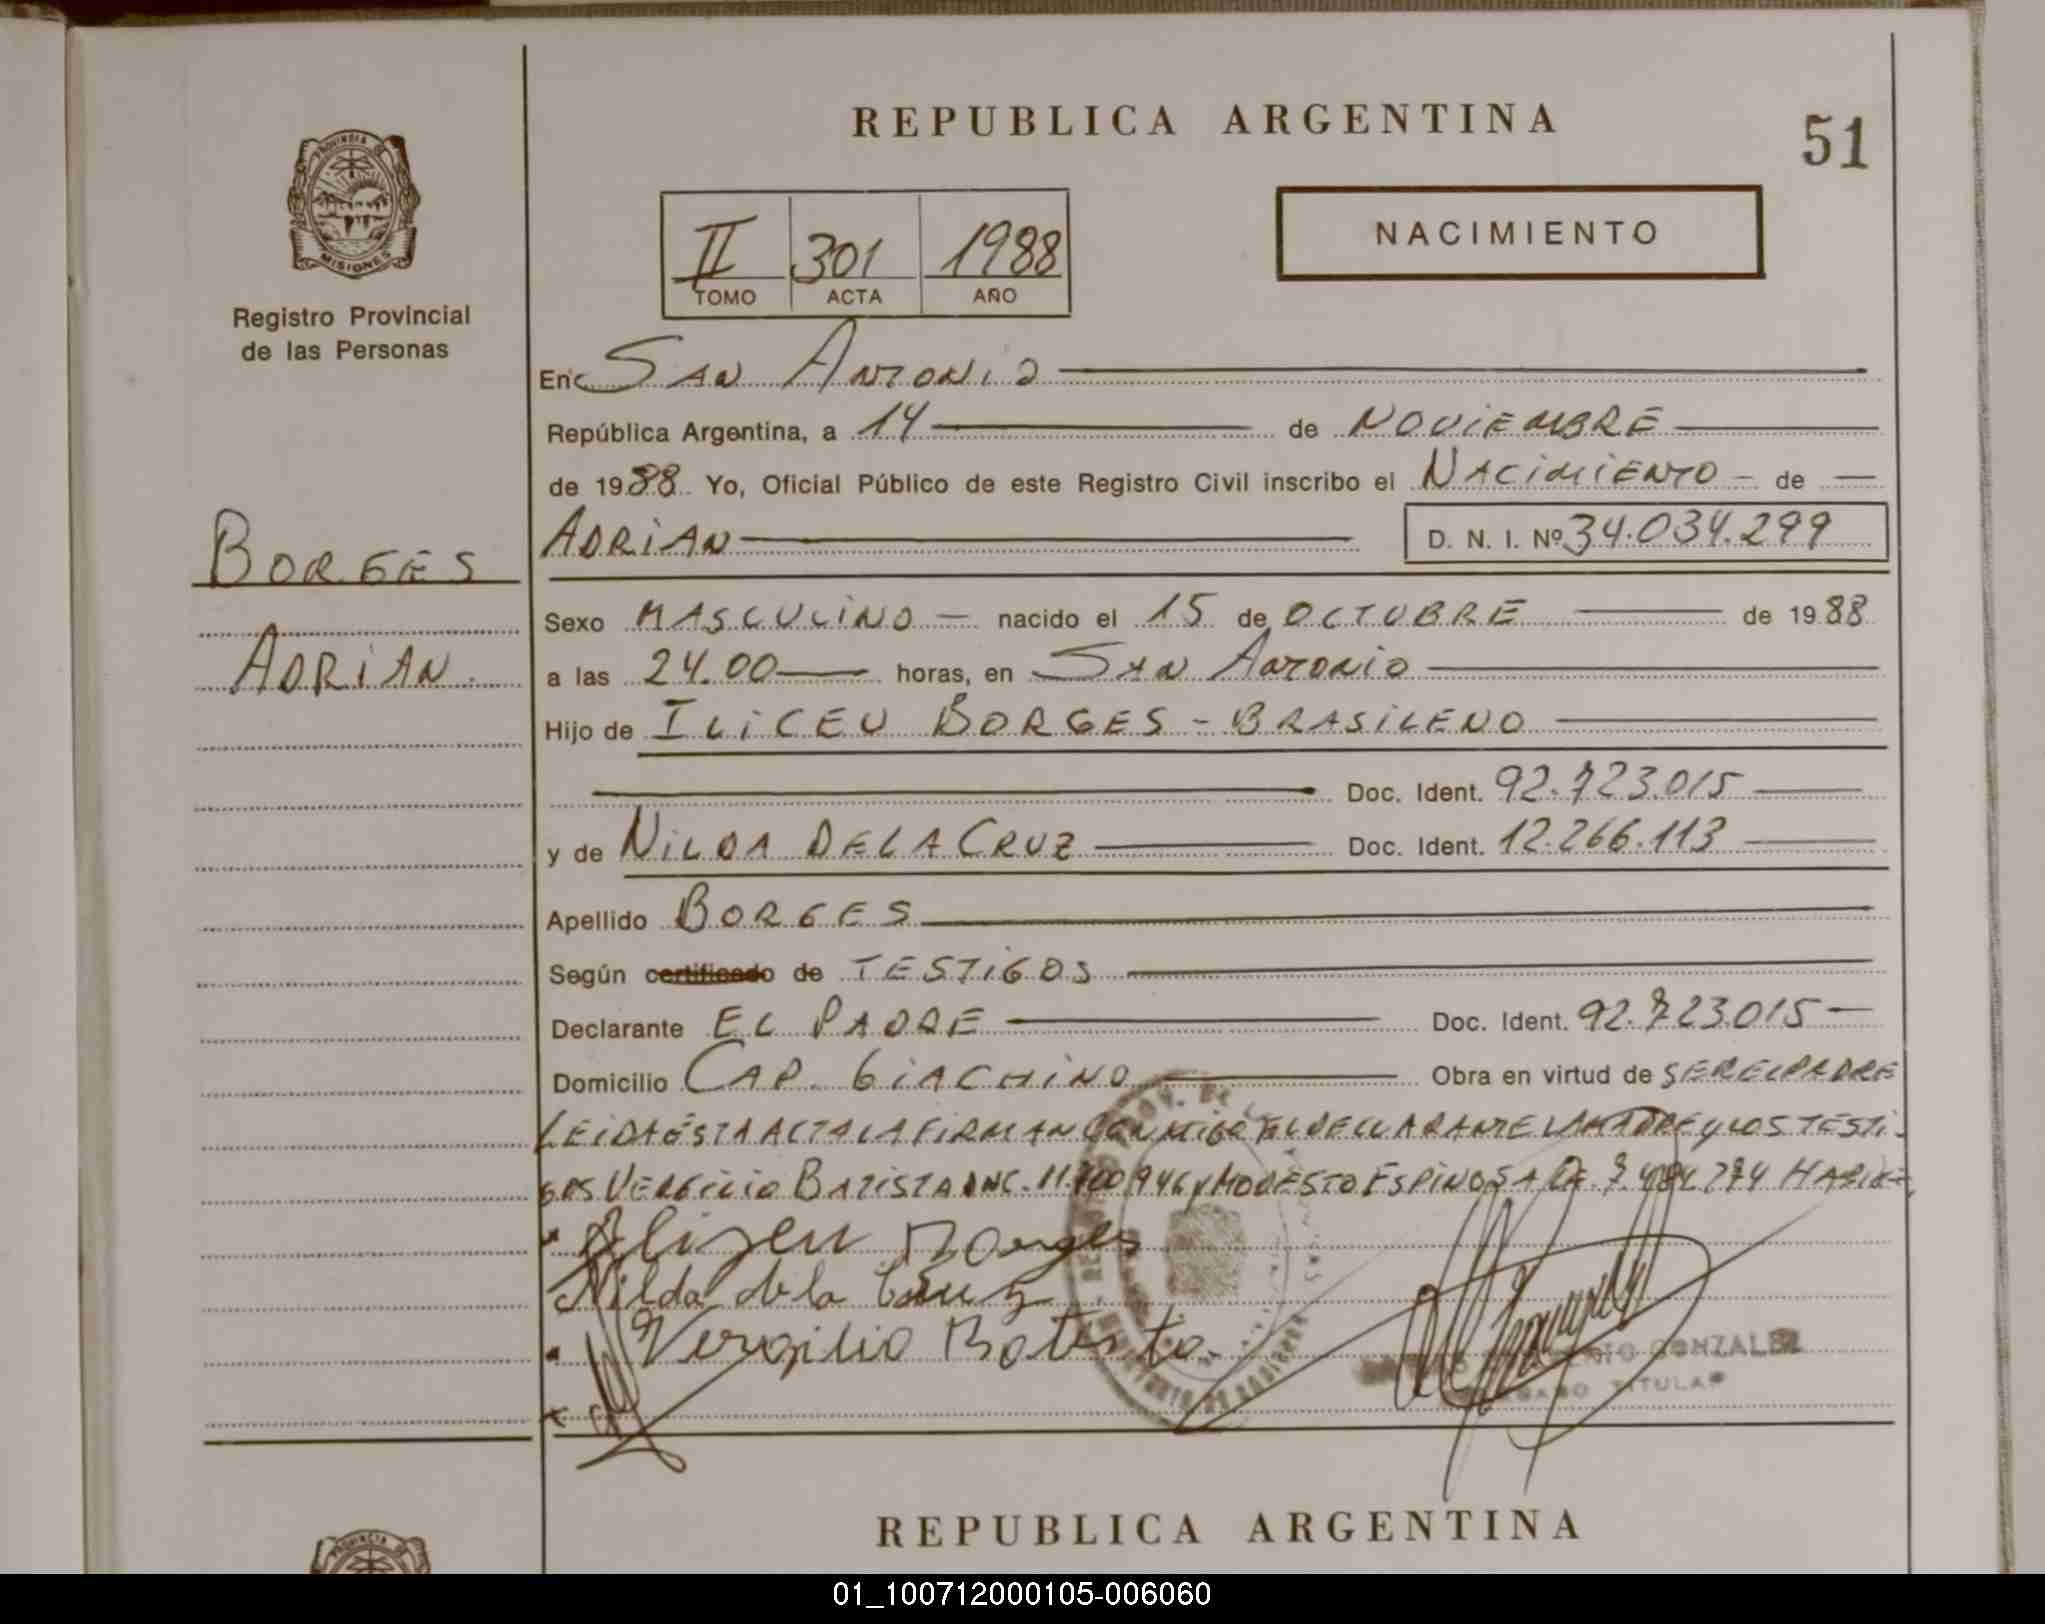 REPUBLICA ARGENTINA
51
PROVINCIA DE
MISIONES
Registro Provincial
de las Personas
II 301 1988
TOMO ACTA AÑO
NACIMIENTO
En SAN ANTONIO
República Argentina, a 14 de NOVIEMBRE
de 1988 Yo, Oficial Público de este Registro Civil inscribo el NACIMIENTO - de
ADRIAN D. N. I. Nº 34.034.299
BORGES
ADRIAN
Sexo MASCULINO - nacido el 15 de OCTUBRE de 1988
a las 24.00 horas, en SAN ANTONIO
Hijo de ILICEU BORGES - BRASILENO
Doc. Ident. 92.723.015
y de NILDA DE LA CRUZ Doc. Ident. 12.266.113
Apellido BORGES
Según certificado de TESTIGOS
Declarante EL PADRE Doc. Ident. 92.723.015
Domicilio CAP. GIACHINO Obra en virtud de SER EL PADRE
LEIDA ESTA ACTA LA FIRMAN CONMIGO EL DECLARANTE LA MADRE y LOS TESTI-
GOS VERGILIO BATISTA y MODESTO ESPINOSA
Borges
Nilda de la Cruz
Vergilio Batista
GONZALEZ
TITULAR
REPUBLICA ARGENTINA
PROVINCIA
01_100712000105-006060